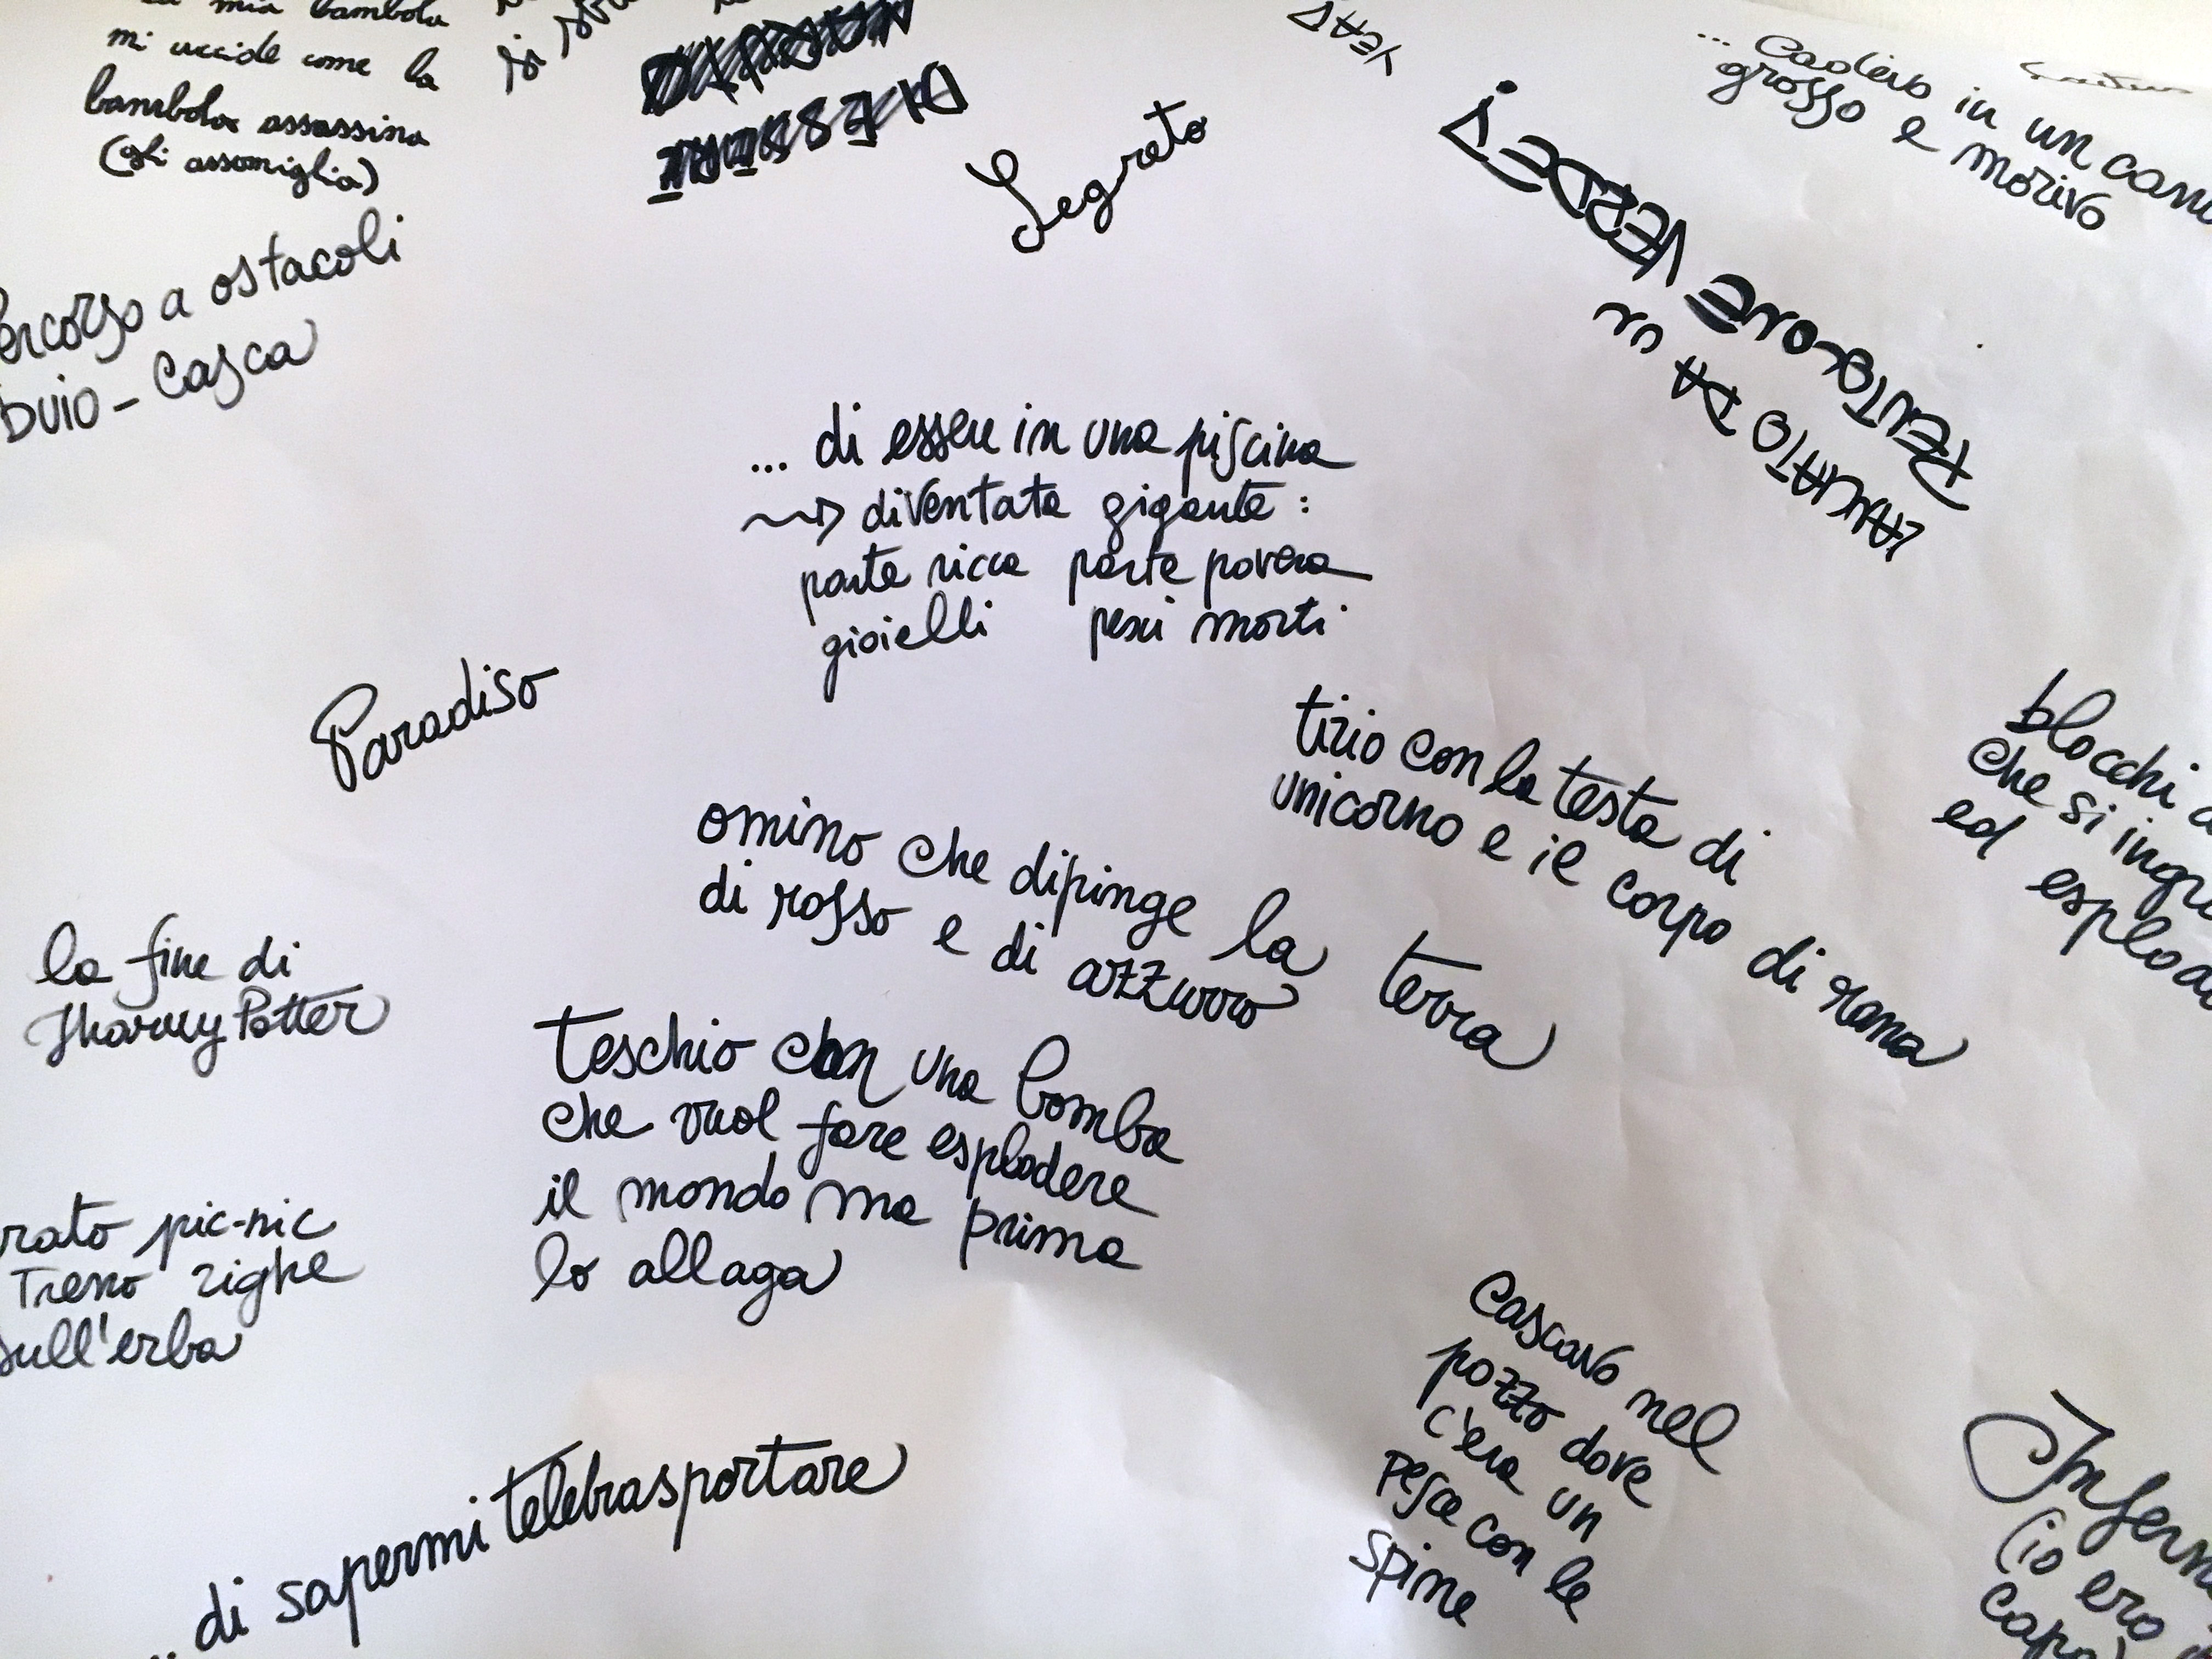 mia bambola
mi uccide come la
bambola assassina
(gli assomiglia)
DI ESSERE
Segreto
YEAH
... Cadevo in un
grosso e morivo
LANCIATO DA UN
PENTOLONE VERDE!
percorso a ostacoli
buio - casca
... di essere in una piscina
→ diventata gigante :
parte ricca parte povera
gioielli pesci morti
Paradiso
tizio con la testa di
unicorno e il corpo di rana
blocchi
che si
ed
omino che dipinge la terra
di rosso e di azzurro
la fine di
Harry Potter
teschio con una bomba
che vuol fare esplodere
il mondo ma prima
lo allaga
pic-nic
Treno righe
sull'erba
Cascavo nel
pozzo dove
c'era un
pesce con le
spine
... di sapermi teletrasportare
(io ero